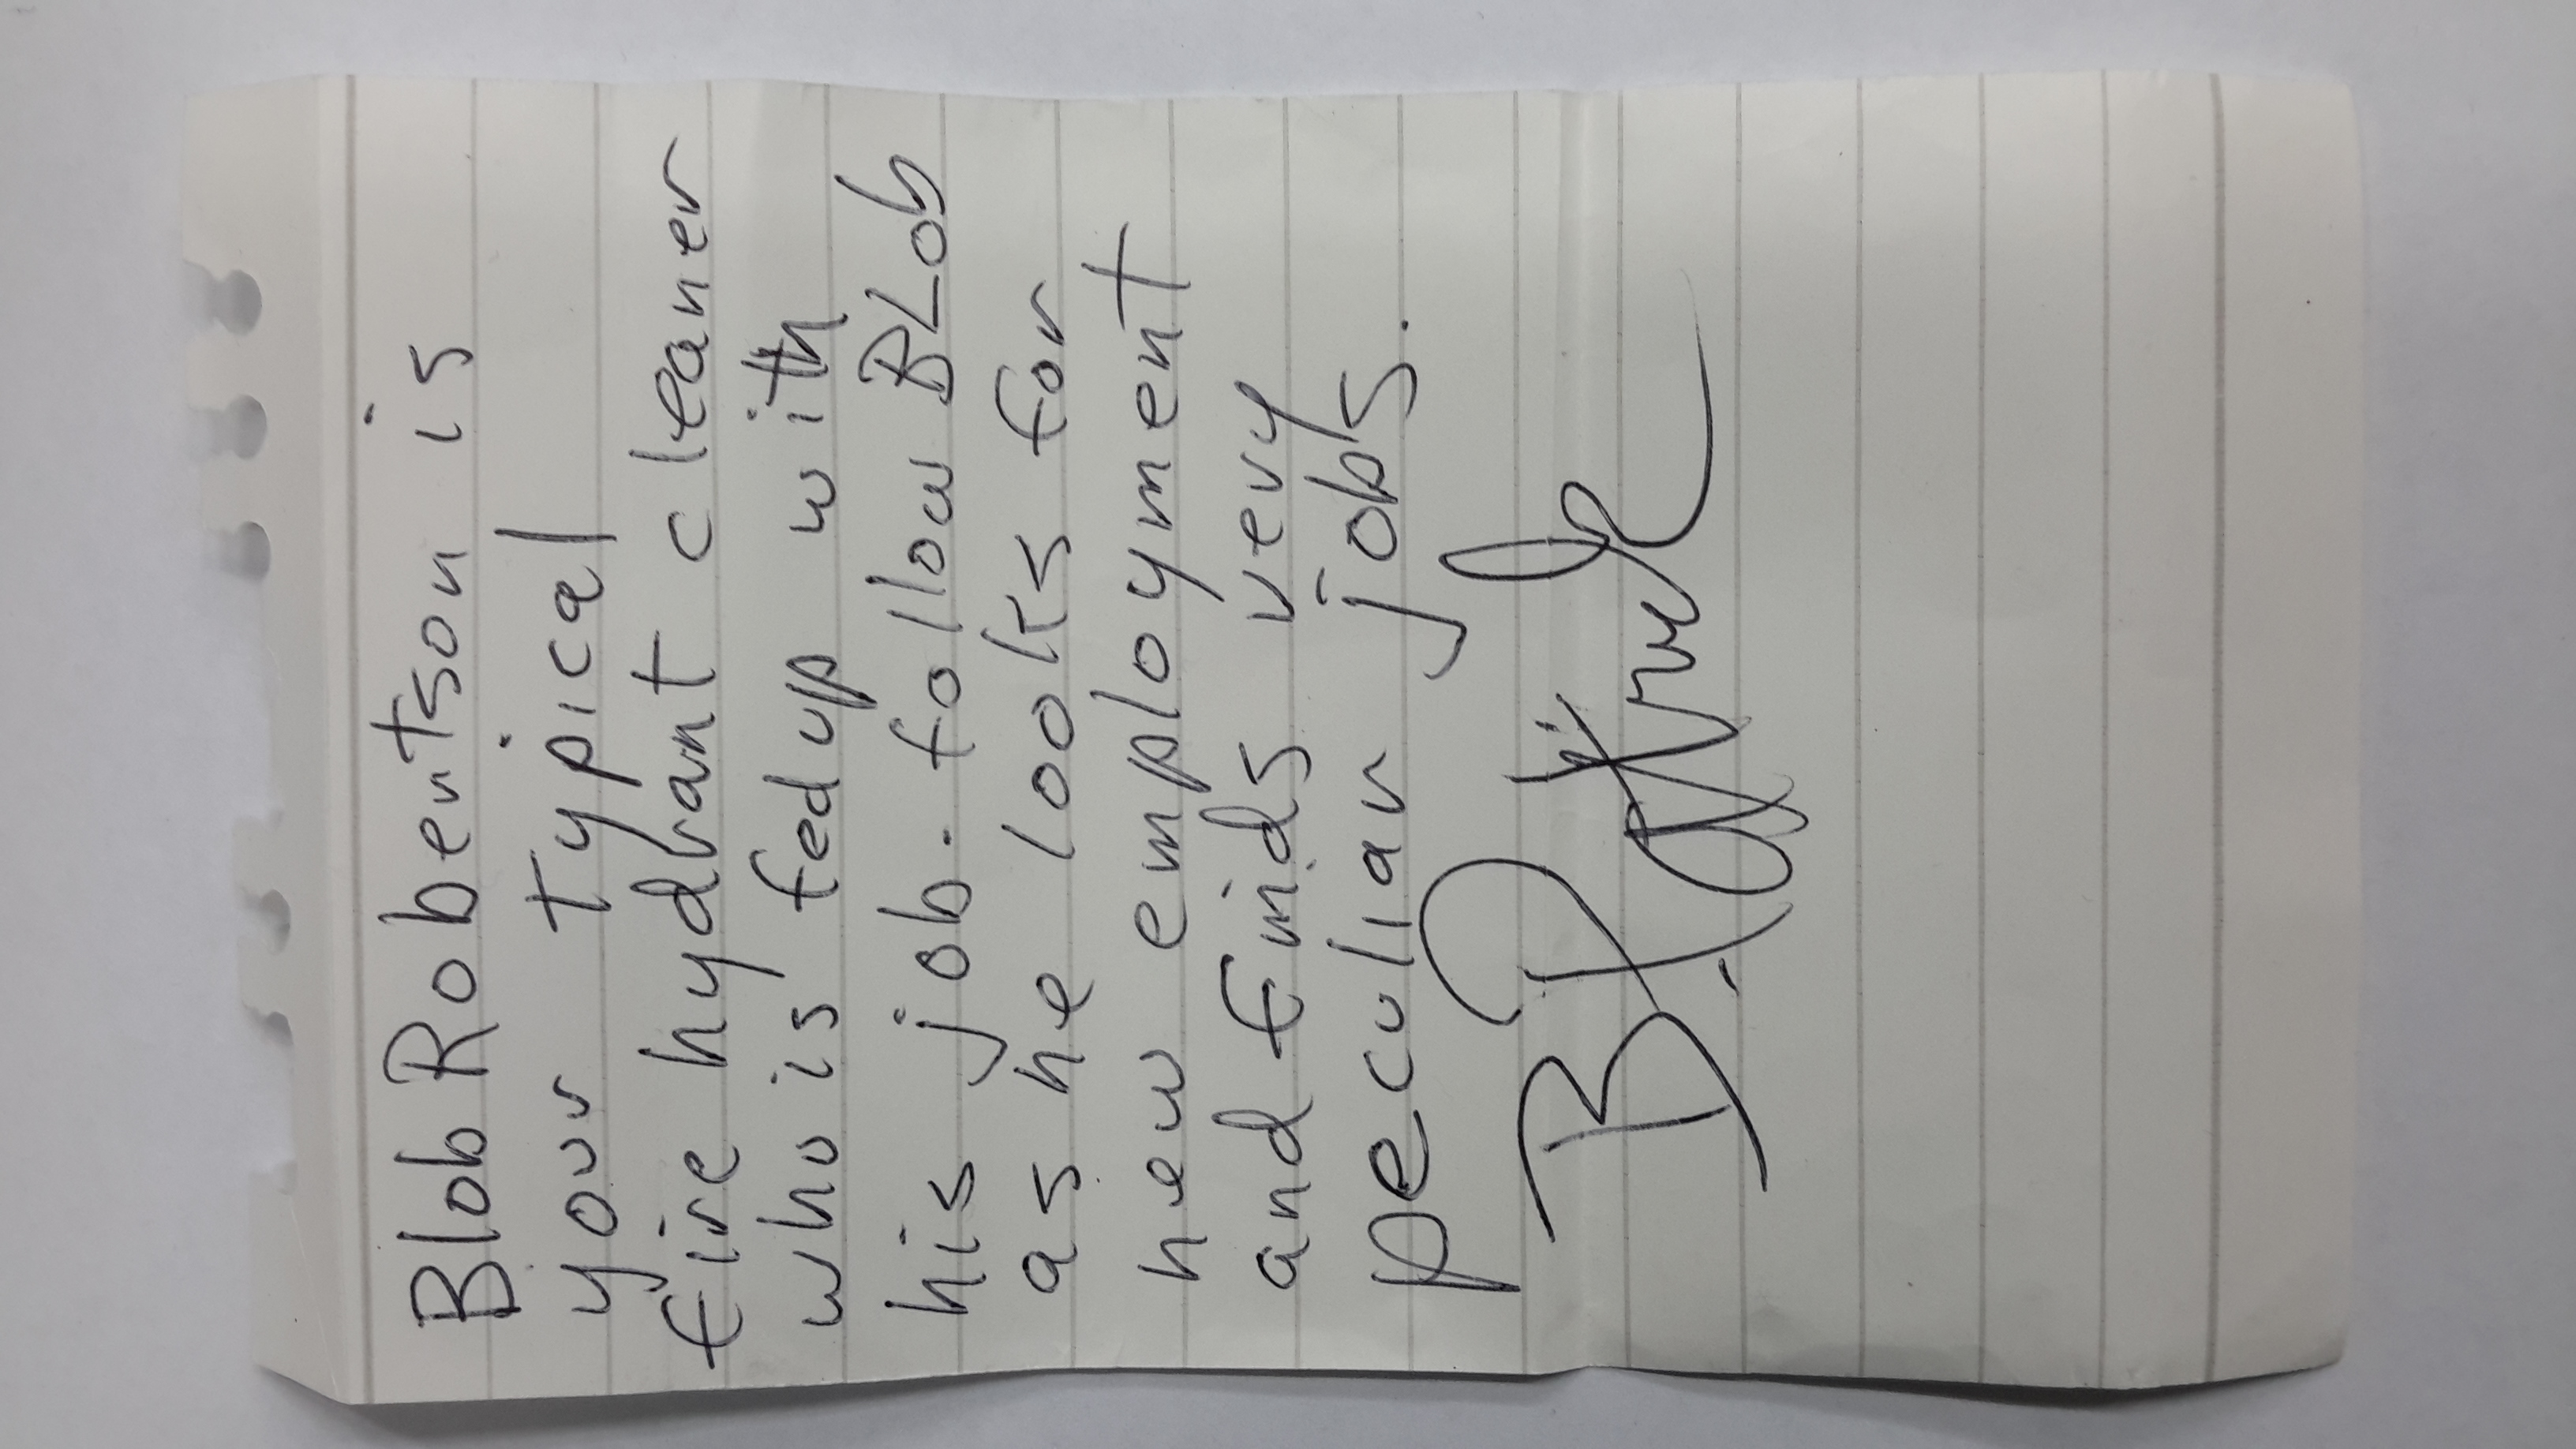 Blob Robertson is
your typical
fire hydrant cleaner
who is fed up with
his job. follow BLob
as he looks for
new employment
and finds very
peculiar jobs.
B.